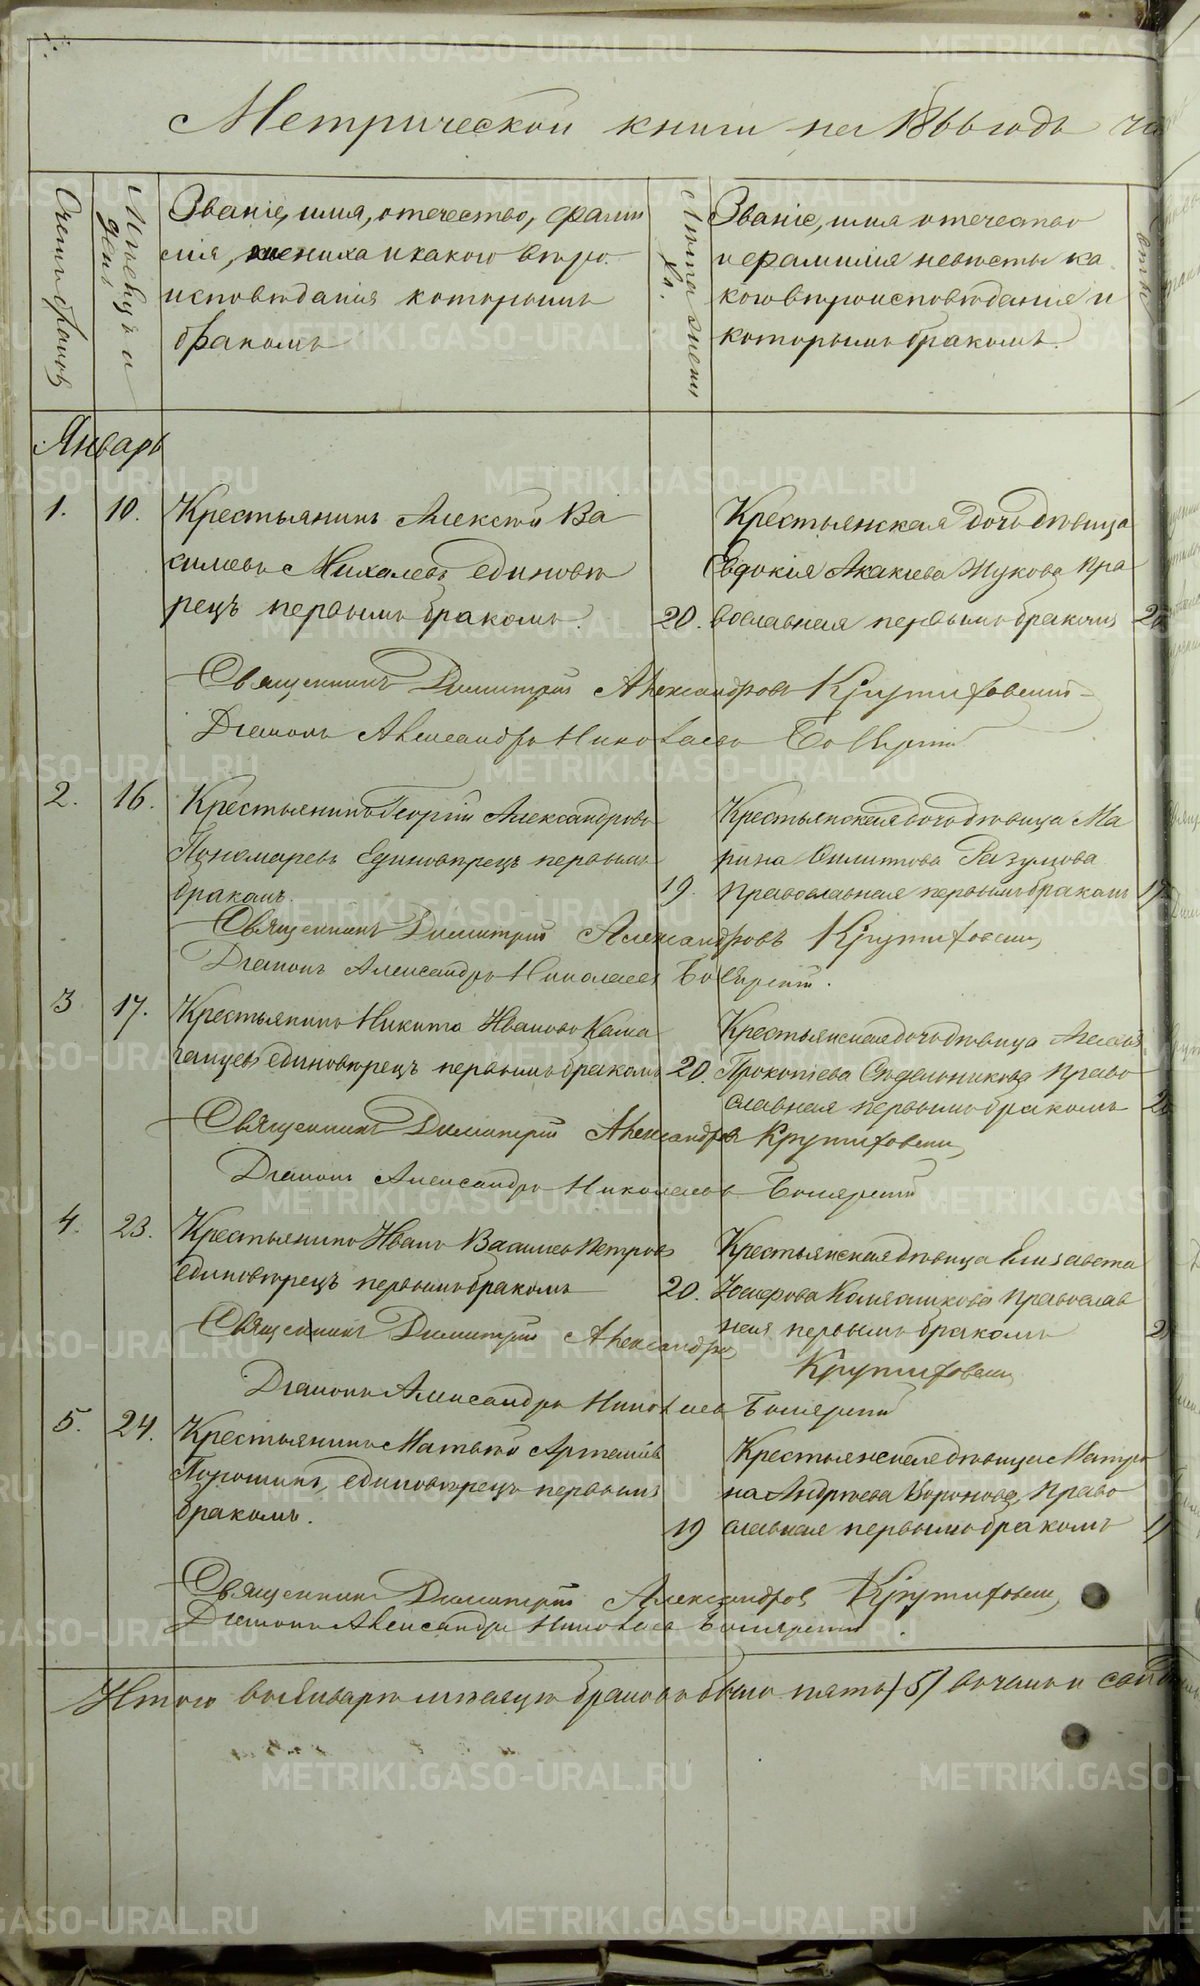 Метрической книги на 1866 годъ ча
Счетъ браковъ
Мѣсяцъ и
день
Званіе, имя, отечество, фами
лія, жениха и какого вѣро
исповѣданія которымъ
бракомъ
Лѣта жени
ха.
Званіе, имя отечество
и фамилія невѣсты ка
кого вѣроисповѣданія и
которымъ бракомъ.
Январь
1. 10. Крестьянинъ Алексѣй Ва
сильевъ Михалевъ единовѣ
рецъ первымъ бракомъ. 20.
Крестьянская дочь дѣвица
Евдокія Акакіева Жукова пра
вославная первымъ бракомъ 20
Священникъ Димитрій Александровъ Крутиховский
Діаконъ Александръ Николаевъ Боярский
2. 16. Крестьянинъ Георгій Александровъ
Пономаревъ Единовѣрецъ первымъ
бракомъ. 19.
Крестьянская дочь дѣвица Ма
рина Филитова Разумова
Православная первымъ бракомъ 17
Священникъ Димитрій Александровъ Крутиховский
Діаконъ Александръ Николаевъ Боярский.
3 17. Крестьянинъ Никита Ивановъ Кама
ганцевъ единовѣрецъ первымъ бракомъ 20.
Крестьянская дочь дѣвица
Прокопіева Сѣдельникова право
славная первымъ бракомъ 20
Священникъ Димитрій Александровъ Крутиховский
Діаконъ Александръ Николаевъ Боярский
4. 23. Крестьянинъ Иванъ Васильевъ Петровъ
единовѣрецъ первымъ бракомъ 20.
Крестьянская дѣвица Елисавета
Іосифова Калашникова Православ
ная первымъ бракомъ 2
Священникъ Димитрій Александровъ
Крутиховский
Діаконъ Александръ Николаевъ Боярский
5. 24. Крестьянинъ Матвѣй Артемьевъ
Порошинъ, единовѣрецъ первымъ
бракомъ. 19
Крестьянская дѣвица Матро
на Андреева Воронова, право
славная первымъ бракомъ 1
Священникъ Димитрій Александровъ Крутиховский
Діаконъ Александръ Николаевъ Боярский.
Итого въ Январѣ мѣсяцѣ браковъ было пять /5/
METRIKI.GASO-URAL.RU